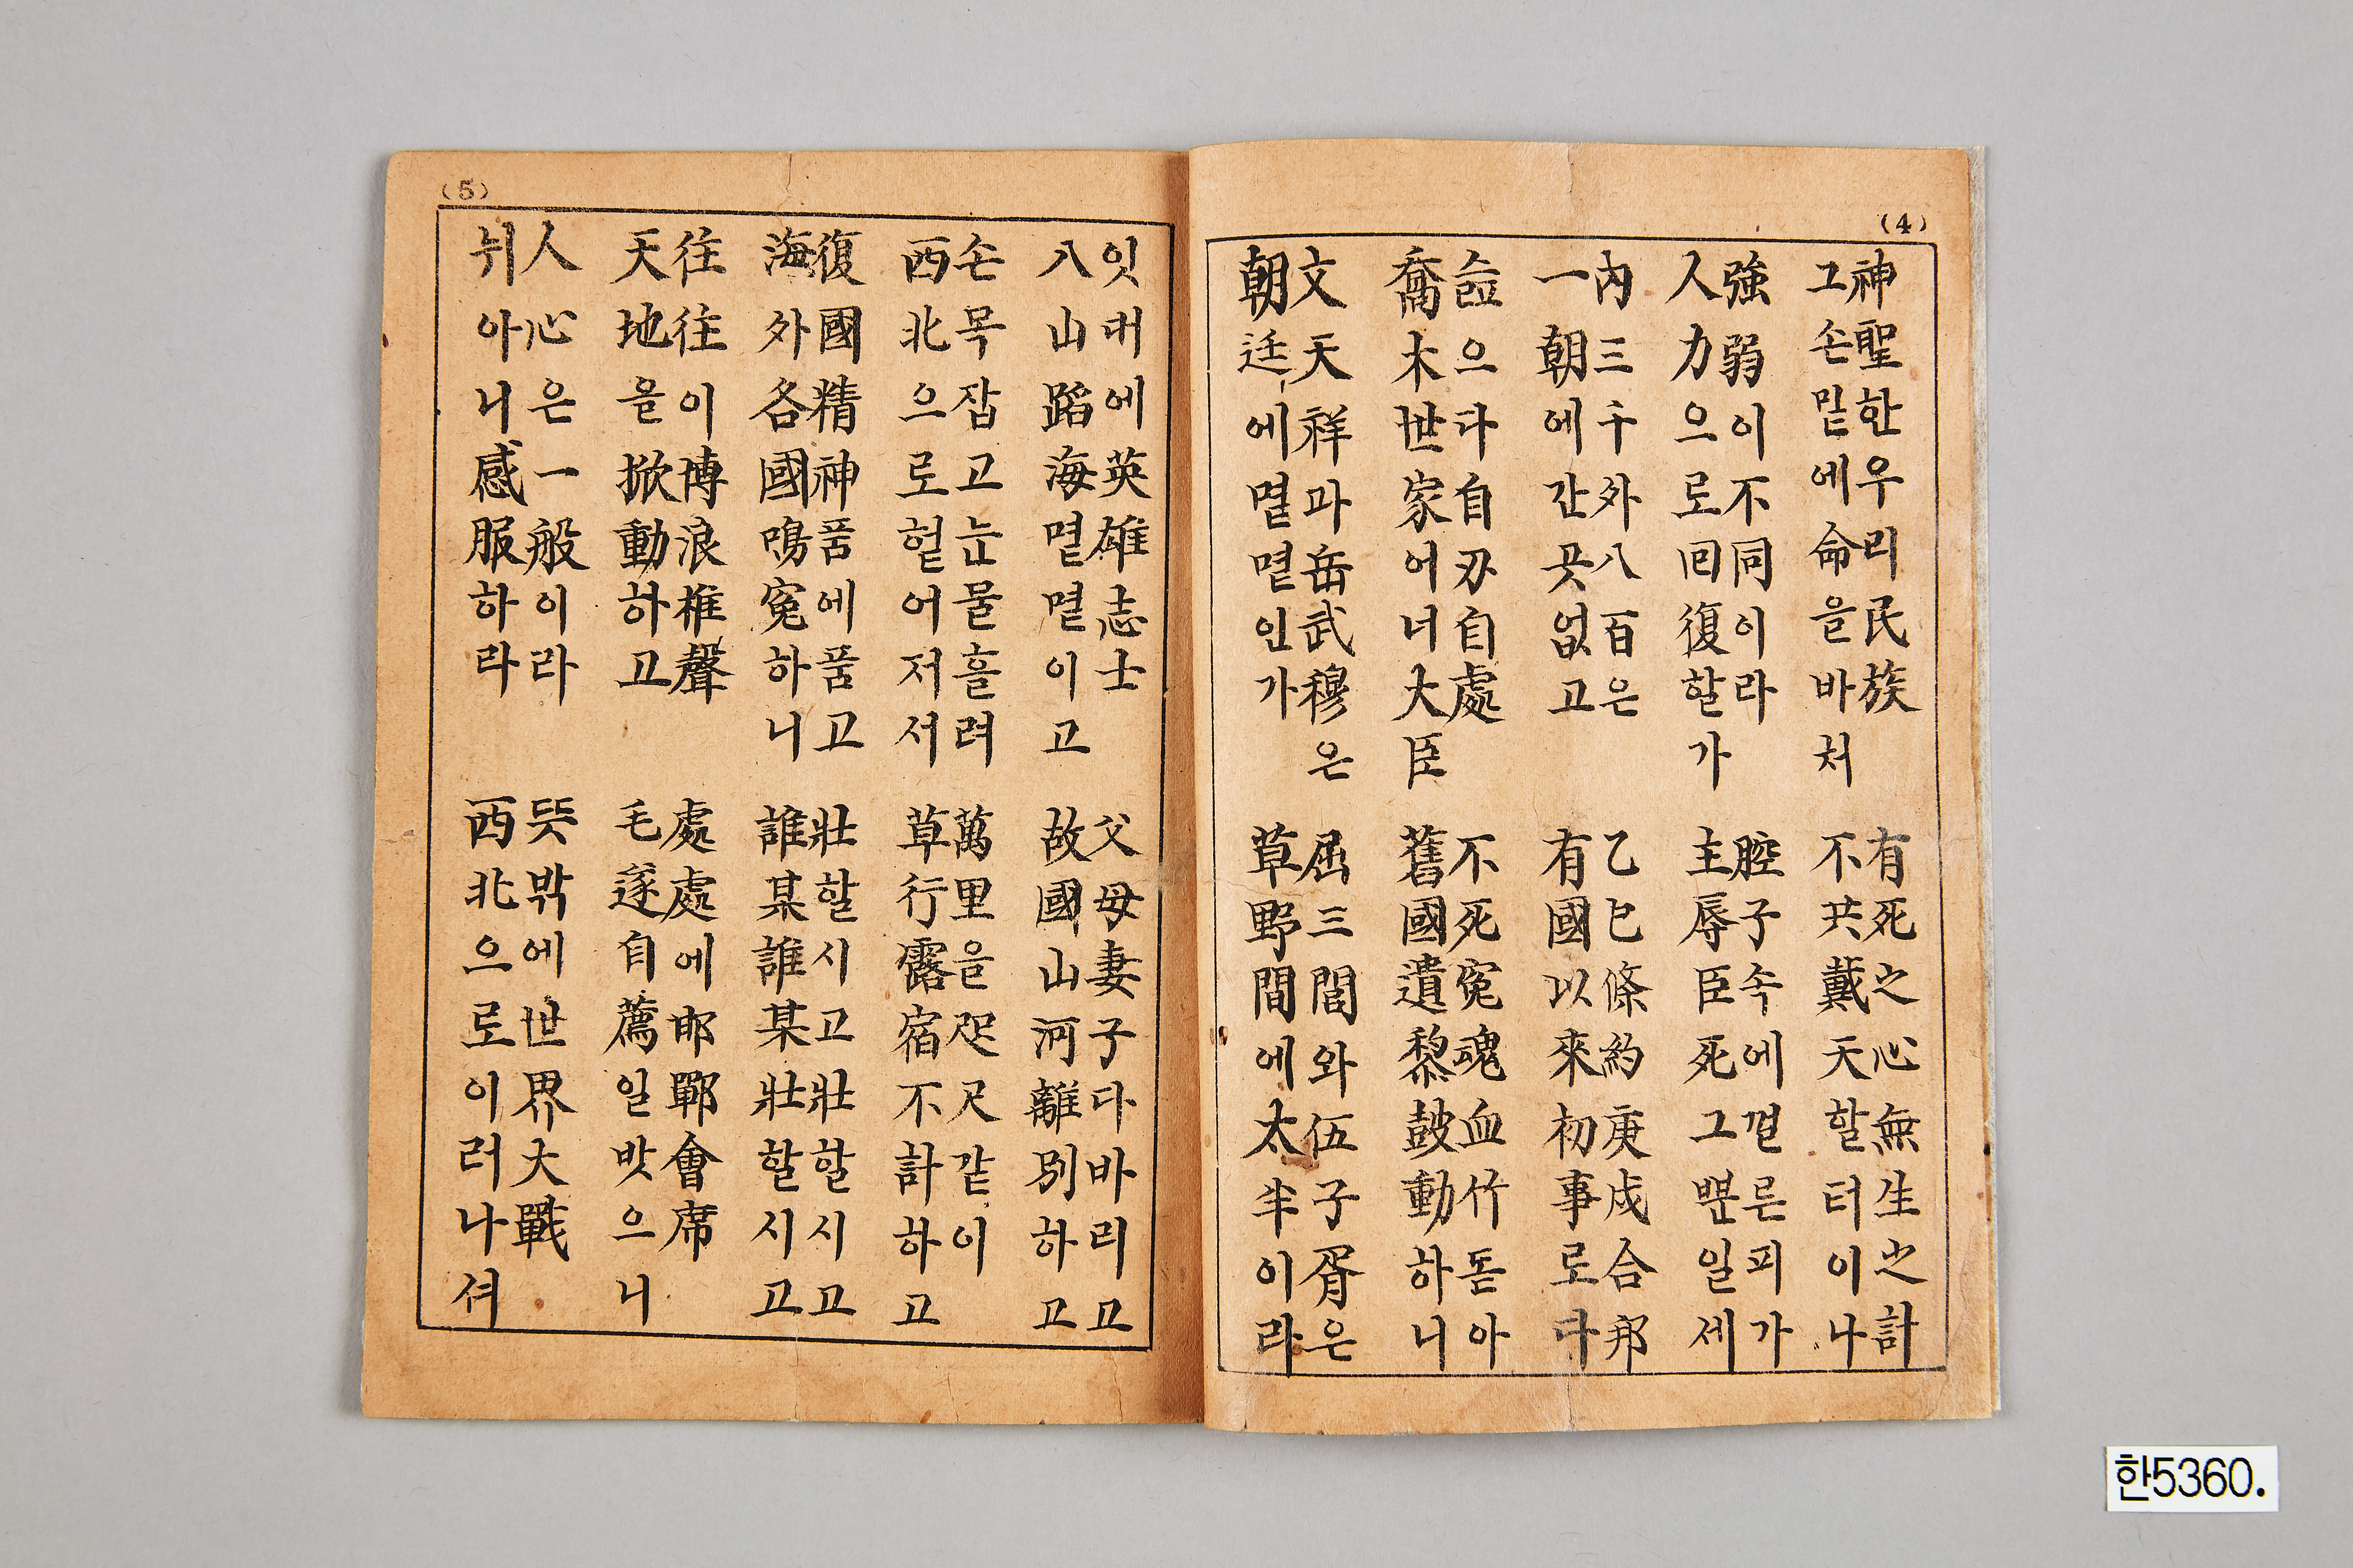 (4)
神聖한우리民族
그손밑에命을바처
有死之心無生之計
不共戴天할터이나
強弱이不同이라
人力으로囘復할가
腔子속에껄른피가
主辱臣死그뿐일세
內三千外八百은
一朝에간곳없고
乙巳條約庚戌合邦
有國以來初事로다
으다自刃自處
喬木世家어너大臣
不死冤魂血竹돋아
舊國遺黎皷動하니
文天祥과岳武穆은
朝廷에몉몉인가
屈三閭와伍子胥은
草野間에太半이라
(5)
잇대에英雄志士
八山蹈海몉몉이고
父母妻子다바리고
故國山河離別하고
손목잡고눈물흘려
西北으로헡어저서
萬里을咫尺같이
草行露宿不計하고
復國精神품에품고
海外各國鳴冤하니
壯할시고壯할시고
誰某誰某壯할시고
往往이博浪椎聲
天地을掀動하고
處處에邯鄲會席
毛遂自薦일밧으니
人心은一般이라
뉘아니感服하라
뜻밖에世界大戰
西北으로이러나셔
한5360.